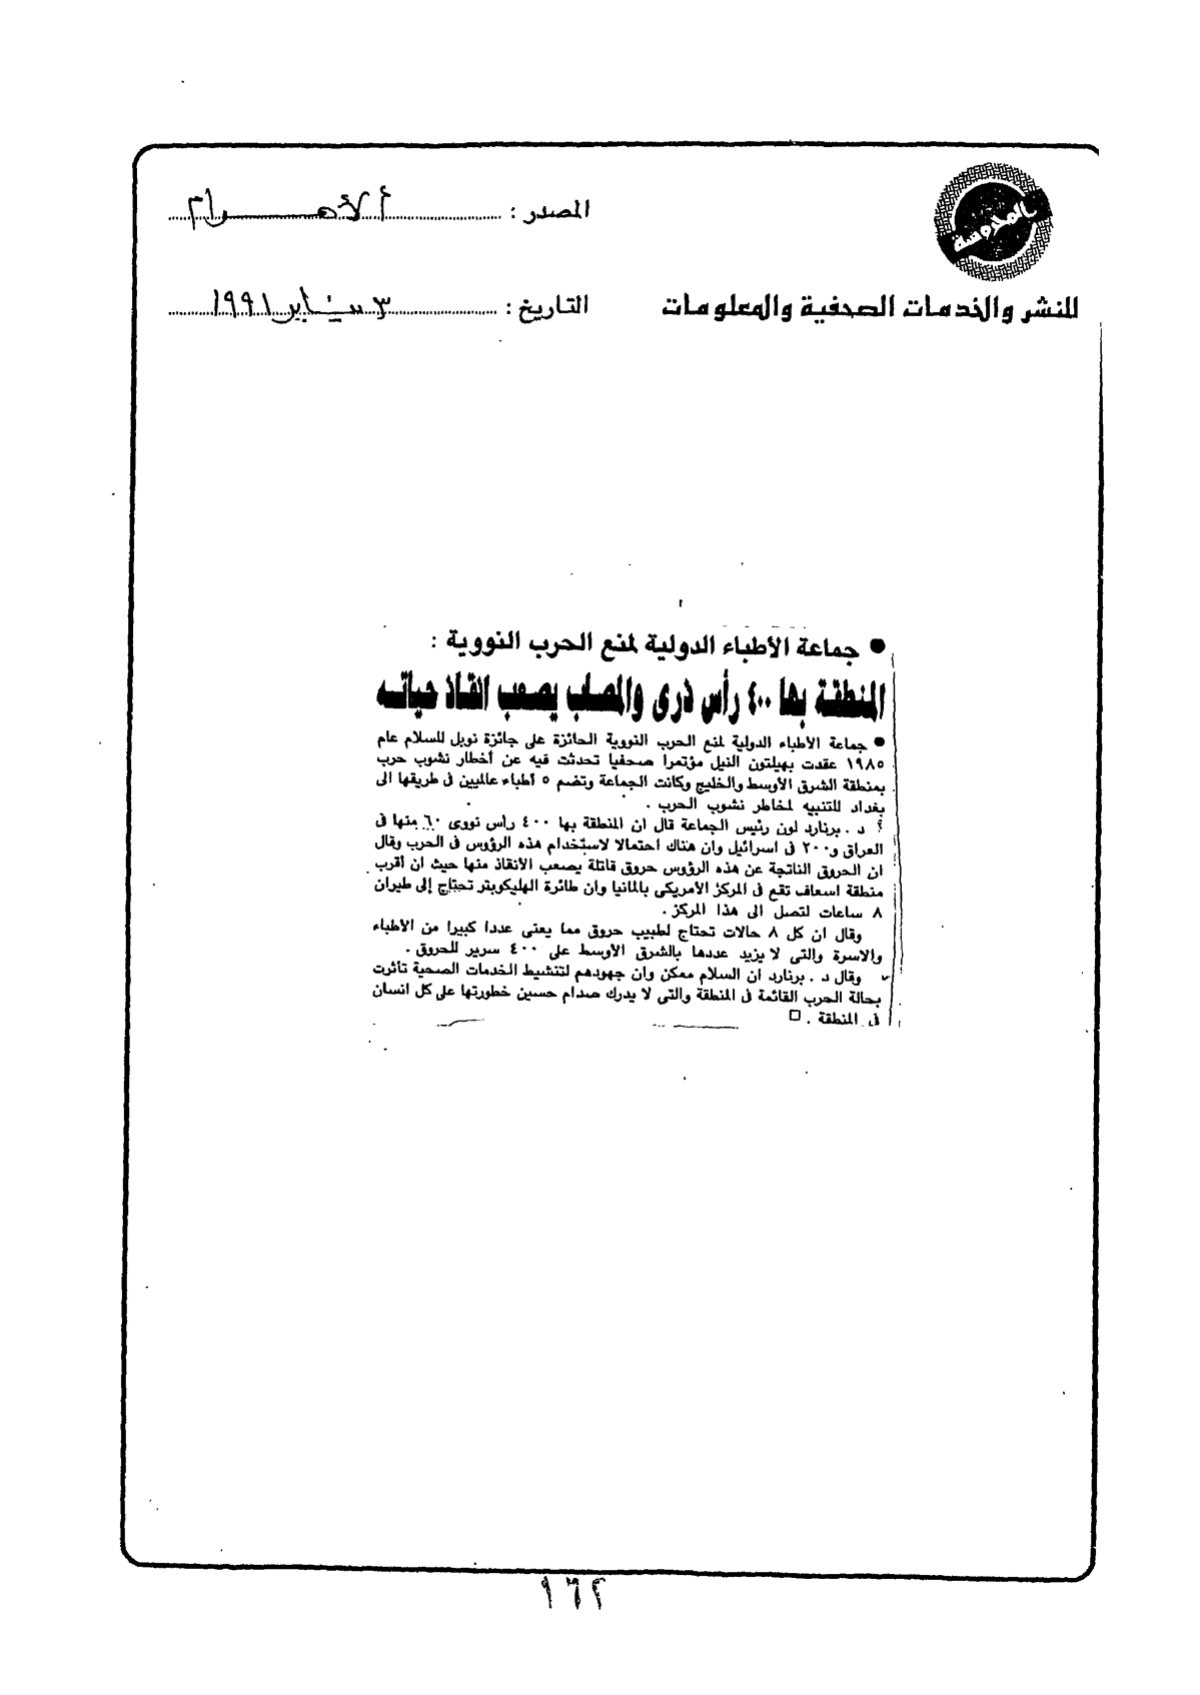 المصدر : الأهرام
المحروسة
التاريخ : ٣ يناير ١٩٩١
للنشر والخدمات الصحفية والمعلومات
● جماعة الأطباء الدولية لمنع الحرب النووية :
المنطقة بها ٤٠٠ رأس ذرى والمصاب يصعب انقاذ حياته
● جماعة الأطباء الدولية لمنع الحرب النووية الحائزة على جائزة نوبل للسلام عام
١٩٨٥ عقدت بهيلتون النيل مؤتمرا صحفيا تحدثت فيه عن أخطار نشوب حرب
بمنطقة الشرق الأوسط والخليج وكانت الجماعة وتضم ٥ أطباء عالميين فى طريقها الى
بغداد للتنبيه لمخاطر نشوب الحرب .
د . برنارد لون رئيس الجماعة قال ان المنطقة بها ٤٠٠ رأس نووى ٦٠ منها فى
العراق و٢٠٠ فى اسرائيل وان هناك احتمالا لاستخدام هذه الرؤوس فى الحرب وقال
ان الحروق الناتجة عن هذه الرؤوس حروق قاتلة يصعب الأنقاذ منها حيث ان أقرب
منطقة اسعاف تقع فى المركز الأمريكى بالمانيا وان طائرة الهليكوبتر تحتاج إلى طيران
٨ ساعات لتصل الى هذا المركز .
وقال ان كل ٨ حالات تحتاج لطبيب حروق مما يعنى عددا كبيرا من الأطباء
والاسرة والتى لا يزيد عددها بالشرق الأوسط على ٤٠٠ سرير للحروق .
وقال د . برنارد ان السلام ممكن وان جهودهم لتنشيط الخدمات الصحية تأثرت
بحالة الحرب القائمة فى المنطقة والتى لا يدرك صدام حسين خطورتها على كل انسان
فى المنطقة . □
١٦٢